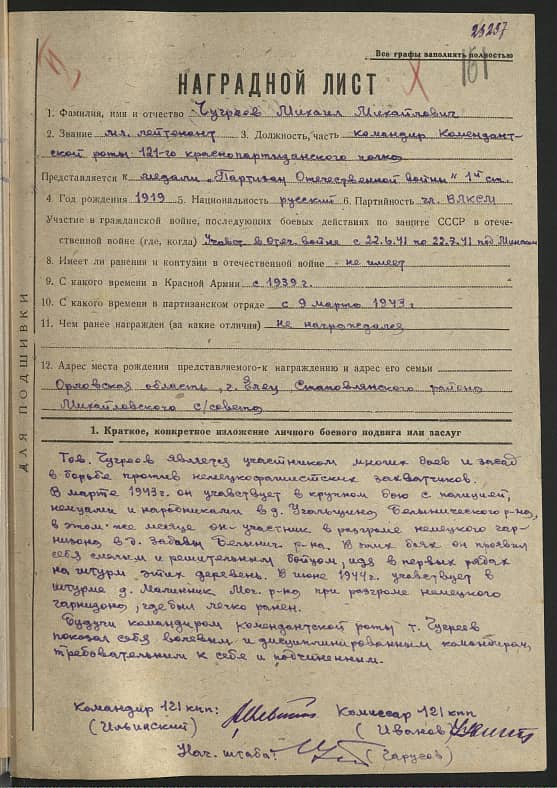 23237
Все графы заполнять полностью
161
НАГРАДНОЙ ЛИСТ
1. Фамилия, имя и отчество Чугреев Михаил Михайлович
2. Звание мл. лейтенант 3. Должность, часть командир Комендант-
ской роты 121-го краснопартизанского полка
Представляется к медали „Партизан Отечественной войны" 1й ст.
4. Год рождения 1919 5. Национальность русский 6. Партийность чл. ВЛКСМ
Участие в гражданской войне, последующих боевых действиях по защите СССР в отече-
ственной войне (где, когда) Участ. в Отеч. войне с 22.6.41 по 22.7.41 под Минском
8. Имеет ли ранения и контузии в отечественной войне не имеет
9. С какого времени в Красной Армии с 1939 г.
10. С какого времени в партизанском отряде с 9 марта 1943 г
11. Чем ранее награжден (за какие отличия) не награждался
12. Адрес места рождения представляемого к награждению и адрес его семьи
Орловская область, г. Елец Становлянского района
Михайловского с/совета
ДЛЯ ПОДШИВКИ
1. Краткое, конкретное изложение личного боевого подвига или заслуг
Тов. Чугреев является участником многих боев и засад
в борьбе против немецкофашистских захватчиков.
В марте 1943 г. он учавствует в крупном бою с полицией,
немцами и народниками в д. Угольщина Белыничского р-на,
в этом же месяце он участник в разгроме немецкого гар-
низона в д. Забавы Белынич. р-на. В этих боях он проявил
себя смелым и решительным бойцом, идя в первых рядах
на штурм этих деревень. В июне 1944 г. учавствует в
штурме д. Малинник Мог. р-на при разгроме немецкого
гарнизона, где был легко ранен.
Будучи командиром комендантской роты т. Чугреев
показал себя волевым и дисциплинированным командиром,
требовательным к себе и подчиненным.
Командир 121 кпп: Комиссар 121 кпп
(Ильинский) (Иванов)
Нач. штаба: (Гарусов)